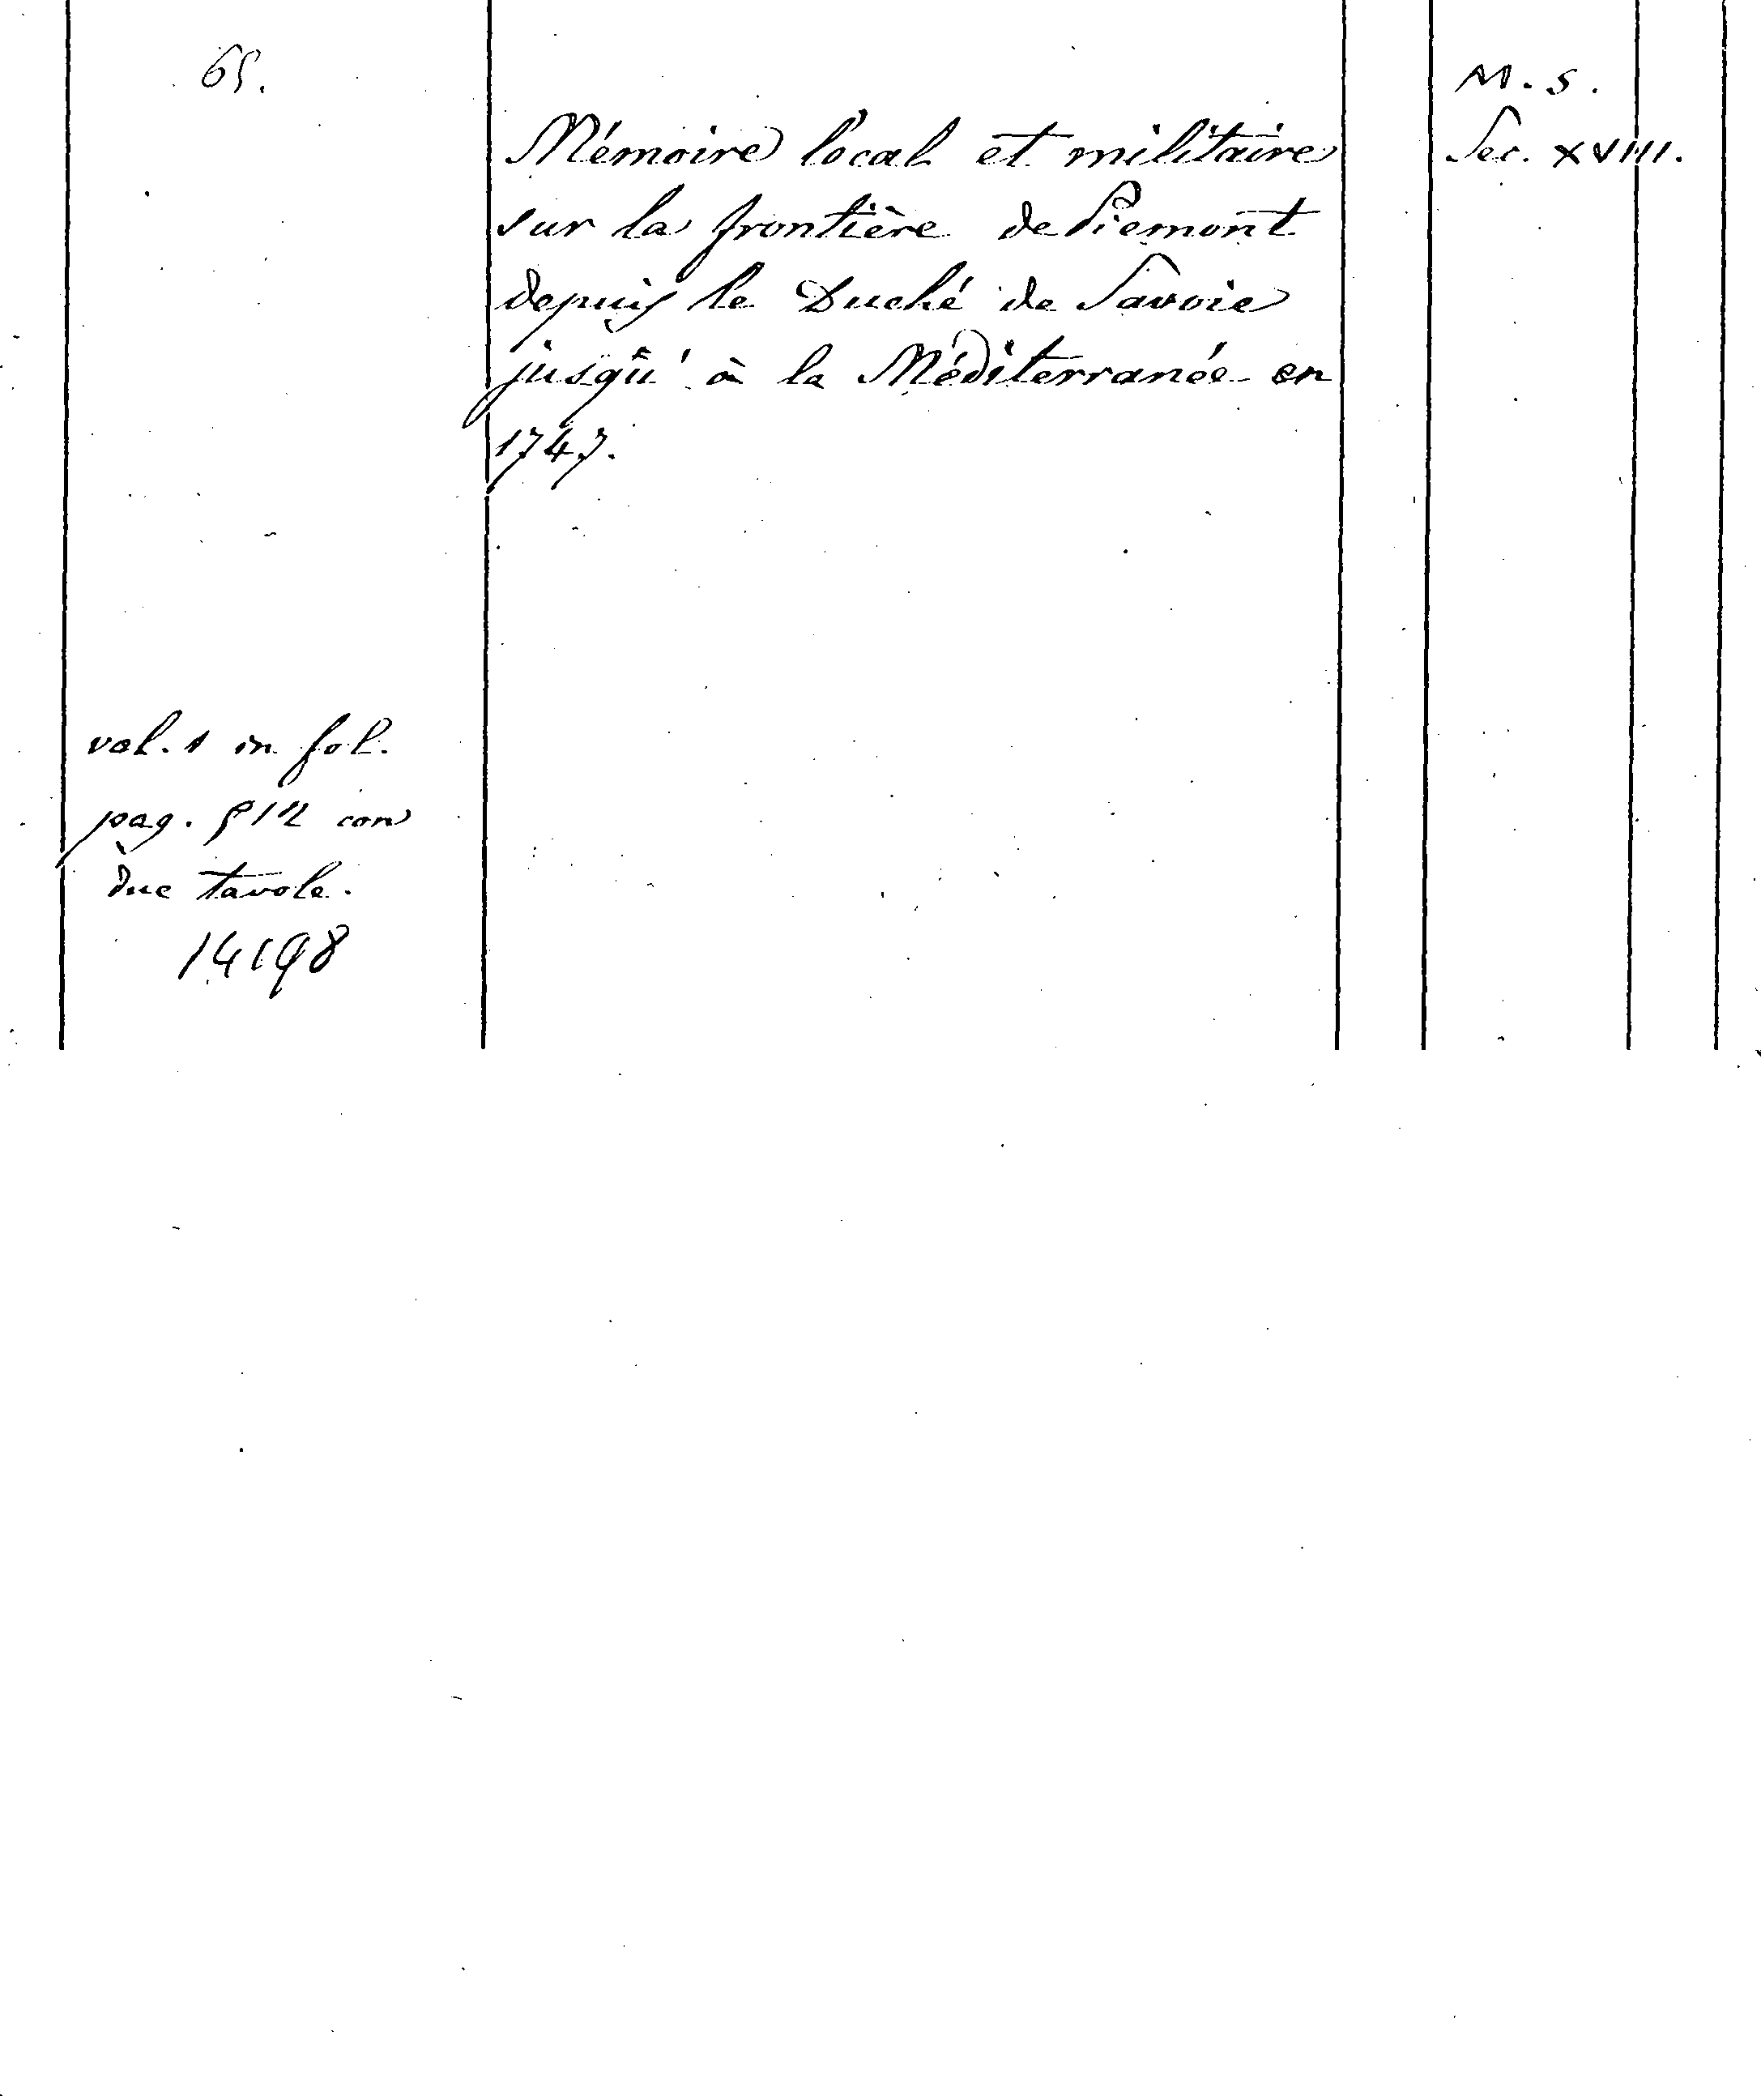 65.
M. S.
Sec. XVIII.
Mémoire local et militaire
sur la frontière de Piemont
depuis le Duché de Savoie
jusqu' à la Méditerranée en
1747.
vol. 1 in fol.
pag. 512 con
due tavole.
14198